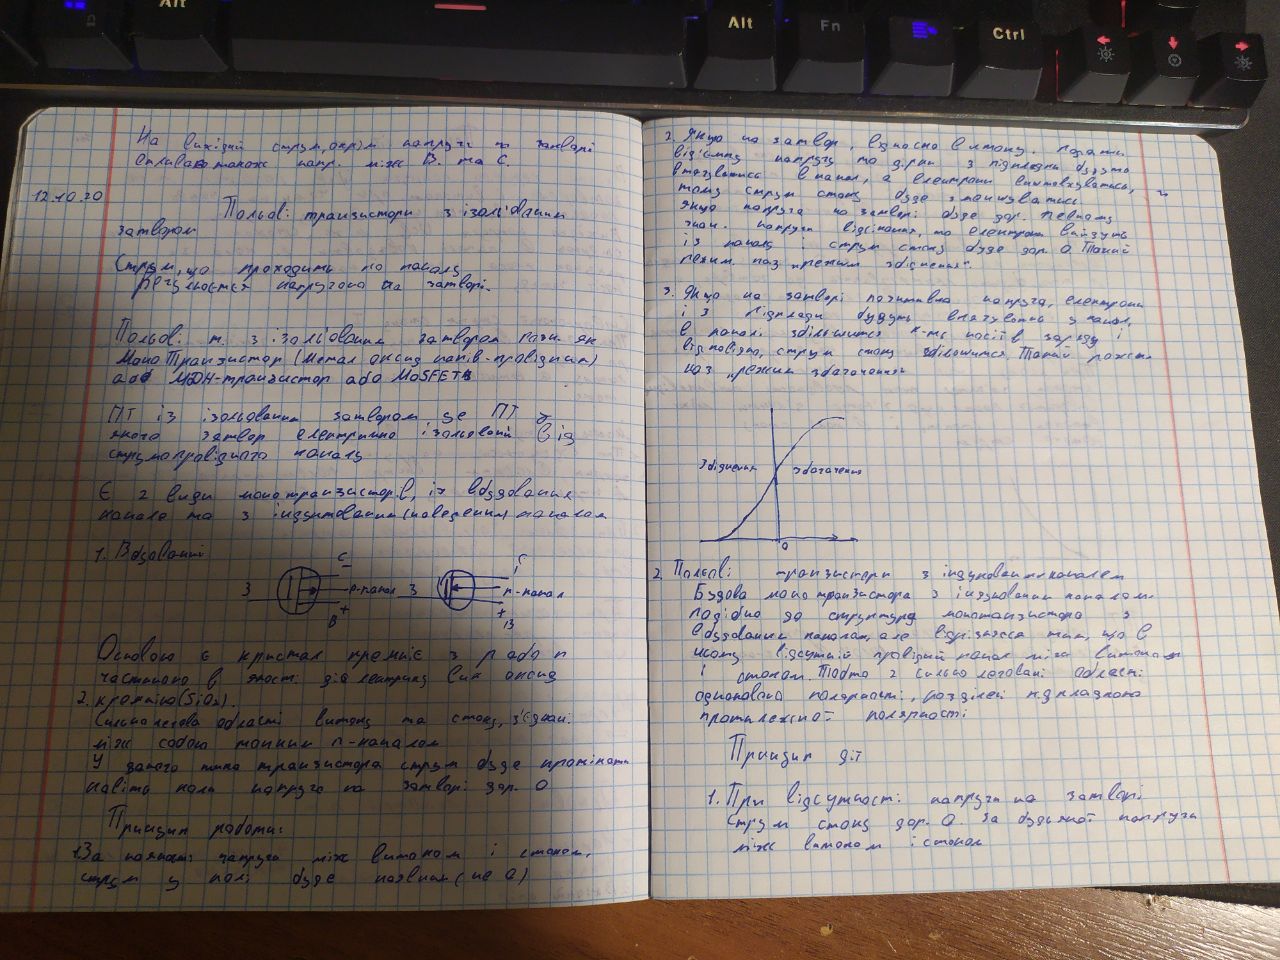 Alt
Alt
Fn
Ctrl
На вихідний струм, окрім напруги на затворі
впливає також напр. між В. та С.
12.10.20
Польові транзистори з ізольованим
затвором
Струм, що проходить по каналу
регулюється напругою на затворі.
Польові т. з ізольованим затвором разн. як
Моно Транзистор (Метал оксид напів-провідник)
або МДН-транзистор або MOSFET
ПТ із ізольованим затвором це ПТ у
якого затвор електрично ізольований від
струмопровідного каналу
Є 2 види монотранзисторів, із вбудованим
канало та з індуктованим (наведеним) каналом
1. Вбудований
С
З
р-канал
+
В
З
Г
n-канал
+
В
Основою є кристал кремніє з р або n
частиною в якості діелектрику вик оксид
2. кремнію (SiO₂).
Сильнолегова області витоку та стоку, з'єднані
між собою тонким n-каналом
У даного типа транзистора струм буде протікати
навіть коли напруга на затворі дор. 0
Принцип роботи:
1. За наявност напруги між витоком і стоком,
струм у полі буде наявним (не 0)
2. Якщо на затвор, відносно витоку подати
від'ємну напругу то дірки з підкладки будуть
втягуватись в канал, а електрони виштовхуватись,
тому струм стоку буде зменшуватись
Якщо напруга на затворі буде дор. певному
знач. напруги відсікання, то електрони вийдуть
із каналу і струм стоку буде дор. 0. Такий
режим наз. „режим збіднення".
3. Якщо на затворі позитивна напруга, електрони
із підклади будуть втягуватись у канал,
в каналі збільшится к-ть носіїв заряду і
відповідно, струм стоку збільшится. Такий режим
наз „режим збагачення"
Збіднення
збагачення
0
2. Польові транзистори з індукованим каналом
Будова моно транзистора з індукованим каналом
подібна до структури монотранзистора з
вбудованим каналом, але відрізняєся тим, що в
ньому відсутній провідний канал між витоком
і стоком. Тобто 2 сильно леговані області
однакової полярності, розділені підкладкою
протилежної полярності
Принцип дії
1. При відсутності напруги на затворі
струм стоку дор. 0. За будьякої напруги
між витоком і стоком